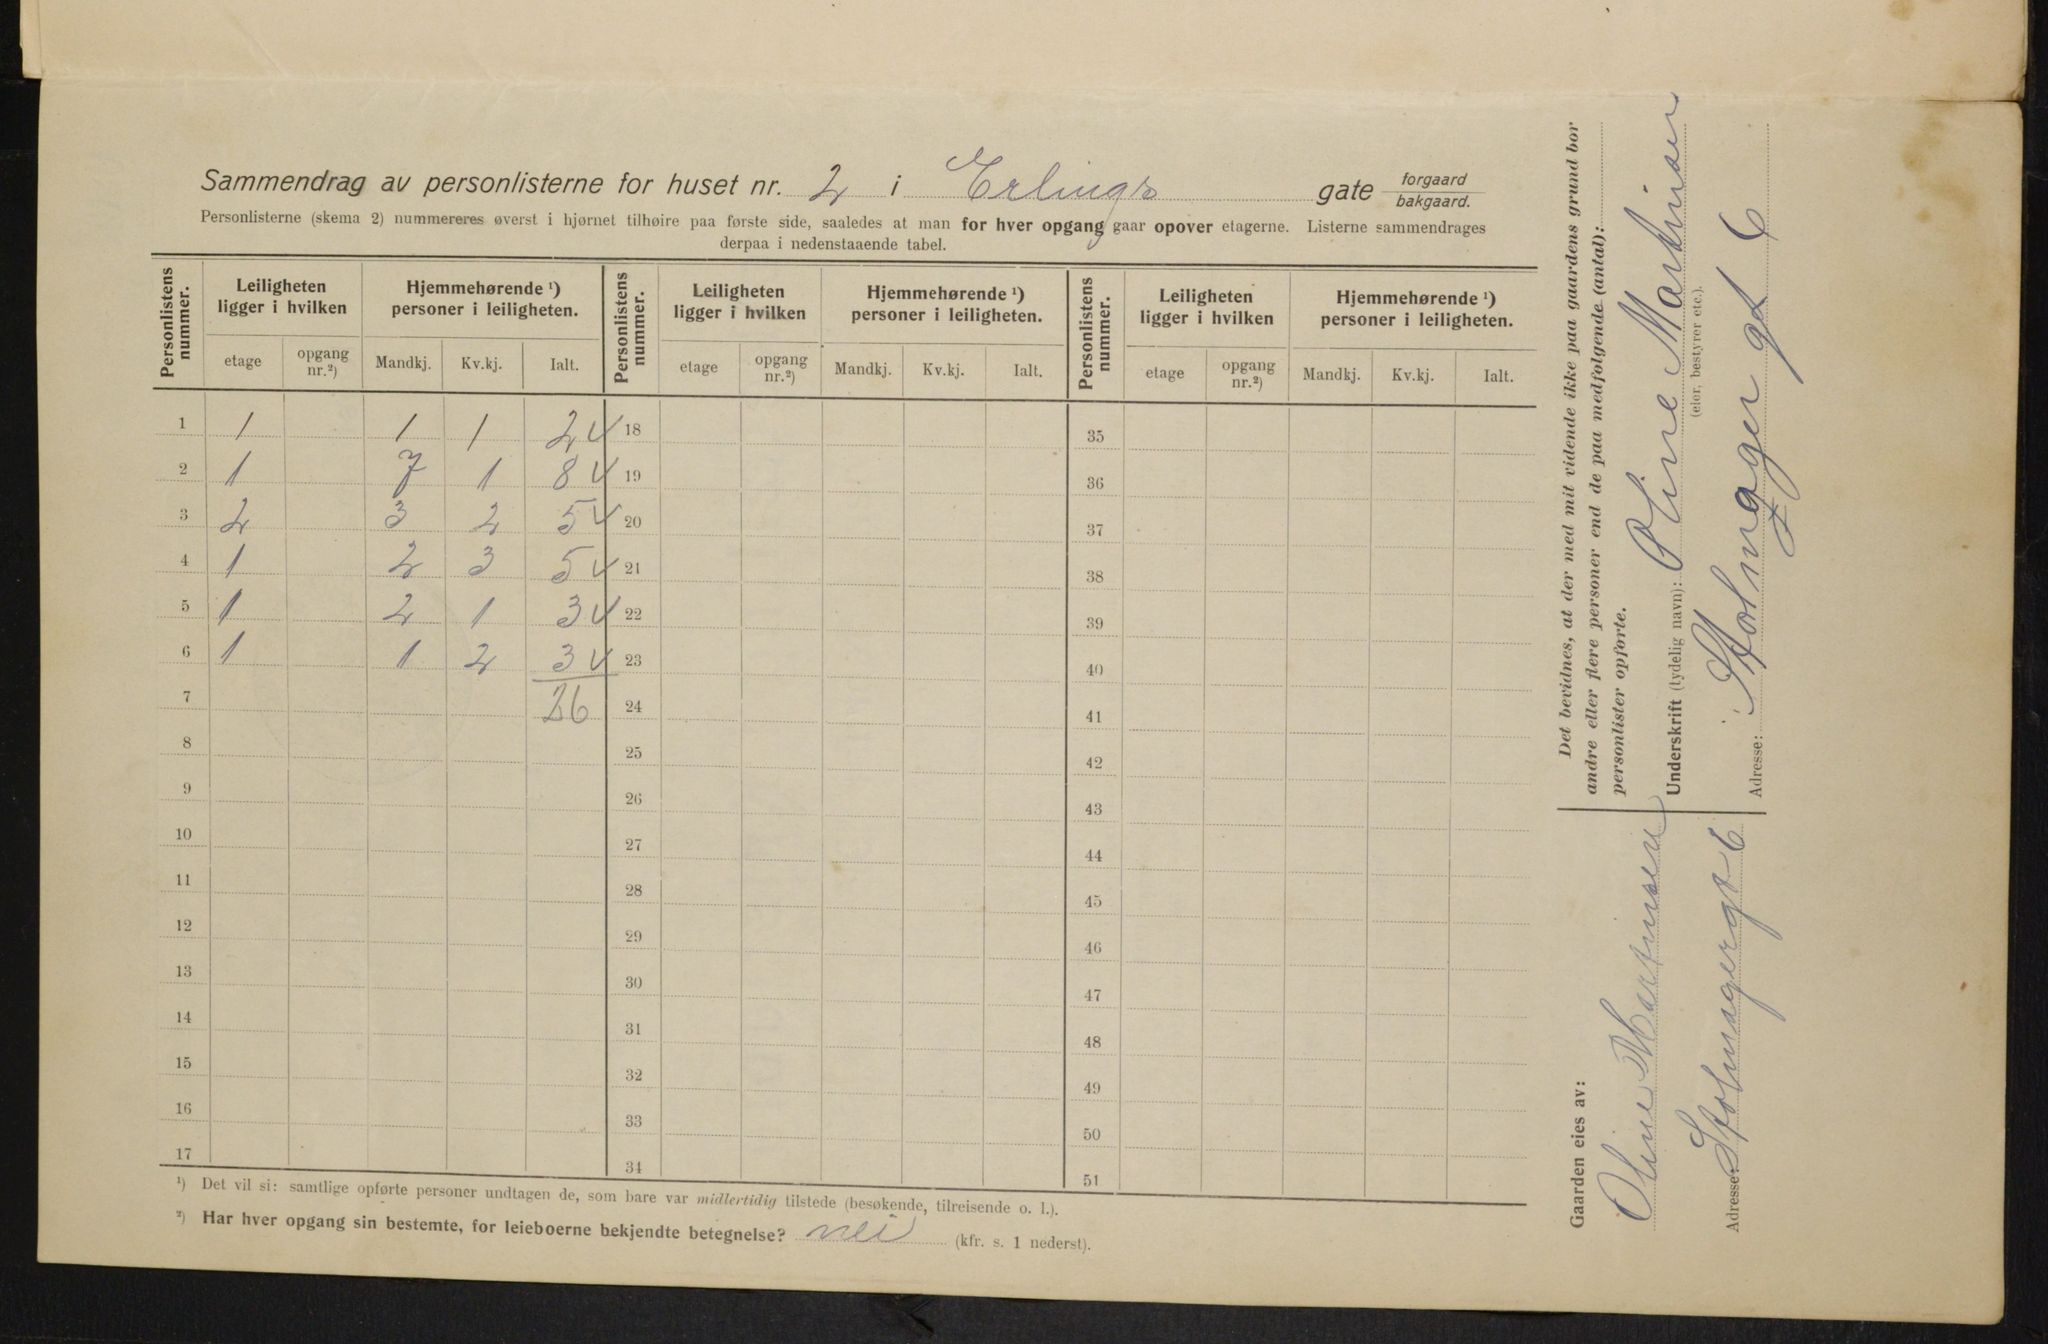 Sammendrag av personlisterne for huset nr. 2 i Erlings gate forgaard / bakgaard.
Personlisterne (skema 2) nummereres øverst i hjørnet tilhøire paa første side, saaledes at man for hver opgang gaar opover etagerne. Listerne sammendrages
derpaa i nedenstaaende tabel.
Personlistens nummer. Leiligheten ligger i hvilken Hjemmehørende ¹) personer i leiligheten. Personlistens nummer. Leiligheten ligger i hvilken Hjemmehørende ¹) personer i leiligheten. Personlistens nummer. Leiligheten ligger i hvilken Hjemmehørende ¹) personer i leiligheten.
etage opgang nr.²) Mandkj. Kv.kj. Ialt. etage opgang nr.²) Mandkj. Kv.kj. Ialt. etage opgang nr.²) Mandkj. Kv.kj. Ialt.
1 1 1 1 2 √ 18 35
2 1 7 1 8 √ 19 36
3 2 3 2 5 √ 20 37
4 1 2 3 5 √ 21 38
5 1 2 1 3 √ 22 39
6 1 1 2 3 √ 23 40
7 26 24 41
8 25 42
9 26 43
10 27 44
11 28 45
12 29 46
13 30 47
14 31 48
15 32 49
16 33 50
17 34 51
¹) Det vil si: samtlige opførte personer undtagen de, som bare var midlertidig tilstede (besøkende, tilreisende o. l.).
²) Har hver opgang sin bestemte, for leieboerne bekjendte betegnelse? nei (kfr. s. 1 nederst).
Det bevidnes, at der med mit vidende ikke paa gaardens grund bor
andre eller flere personer end de paa medfølgende (antal):
personlister opførte.
Underskrift (tydelig navn): Oline Martinsen
(eier, bestyrer etc.).
Adresse: Holmager gt 6
Gaarden eies av:
Oline Martinsen
Adresse Holmagergt 6